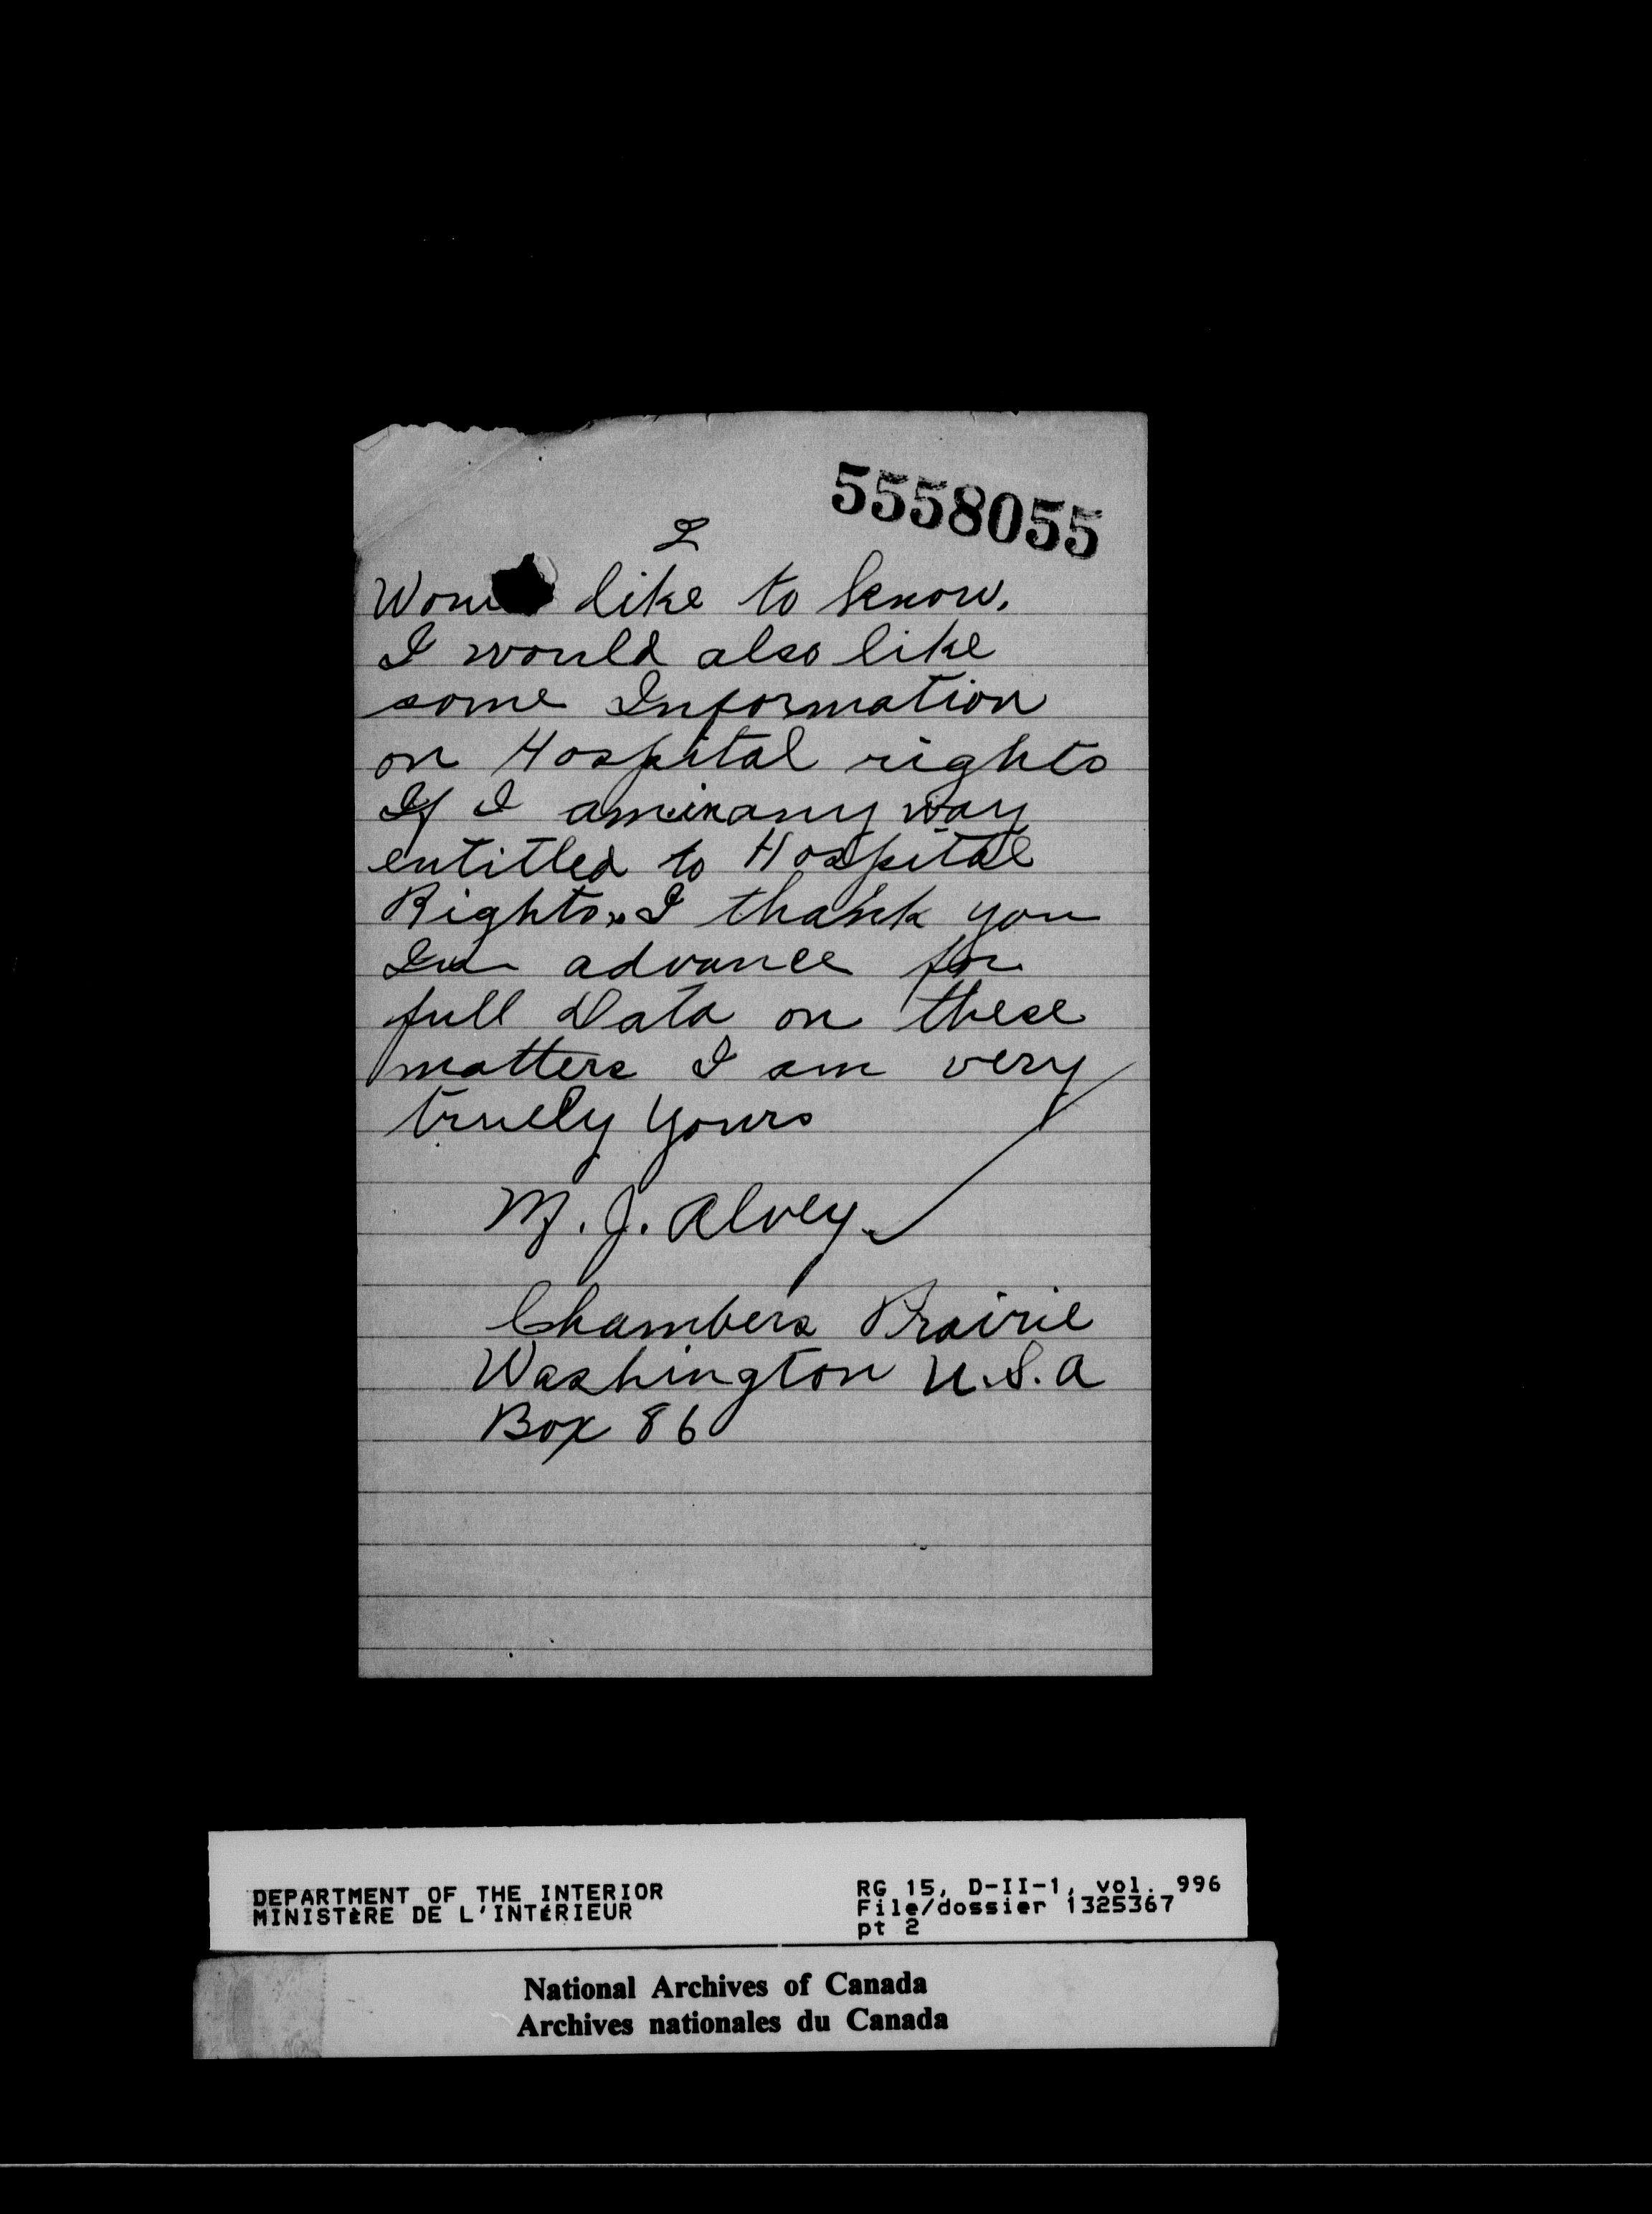 5558055
2
Would like to know.
I would also like
some Information
on Hospital rights
If I am in any way
entitled to Hospital
Rights. I thank you
In advance for
full Data on these
matters I am very
truely yours
M. J. Alvey
Chambers Prairie
Washington U.S.A
Box 86
DEPARTMENT OF THE INTERIOR
MINISTÈRE DE L'INTÉRIEUR
RG 15, D-II-1, vol. 996
File/dossier 1325367
pt 2
National Archives of Canada
Archives nationales du Canada